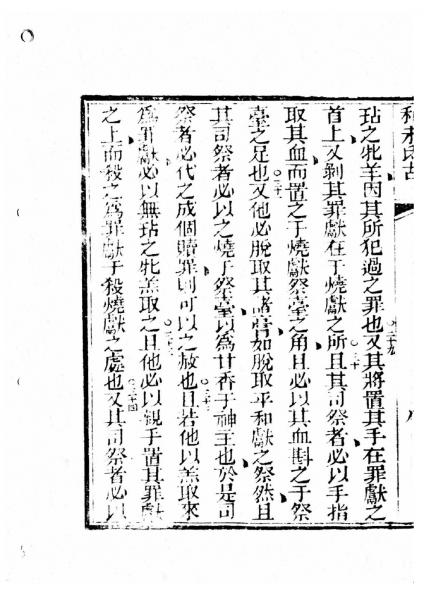 利未氏古
玷之牝羊因其所犯過之罪也○二十九又其將置其手在罪獻之
首上又剝其罪獻在于燒獻之所○三十且其司祭者必以手指
取其血而置之于燒獻祭臺之角且必以其血斟之于祭
臺之足也○三十一又他必脫取其諸膏如脫取平和獻之祭然且
其司祭者必以之燒于祭臺以為甘香于神主也於是司
祭者必代之成個贖罪則可以之赦也○三十二且若他以羔取來
為罪獻必以無玷之牝羔取之○三十三且他必以親手置其罪獻
之上而殺之為罪獻于殺燒獻之處也○三十四又其司祭者必以